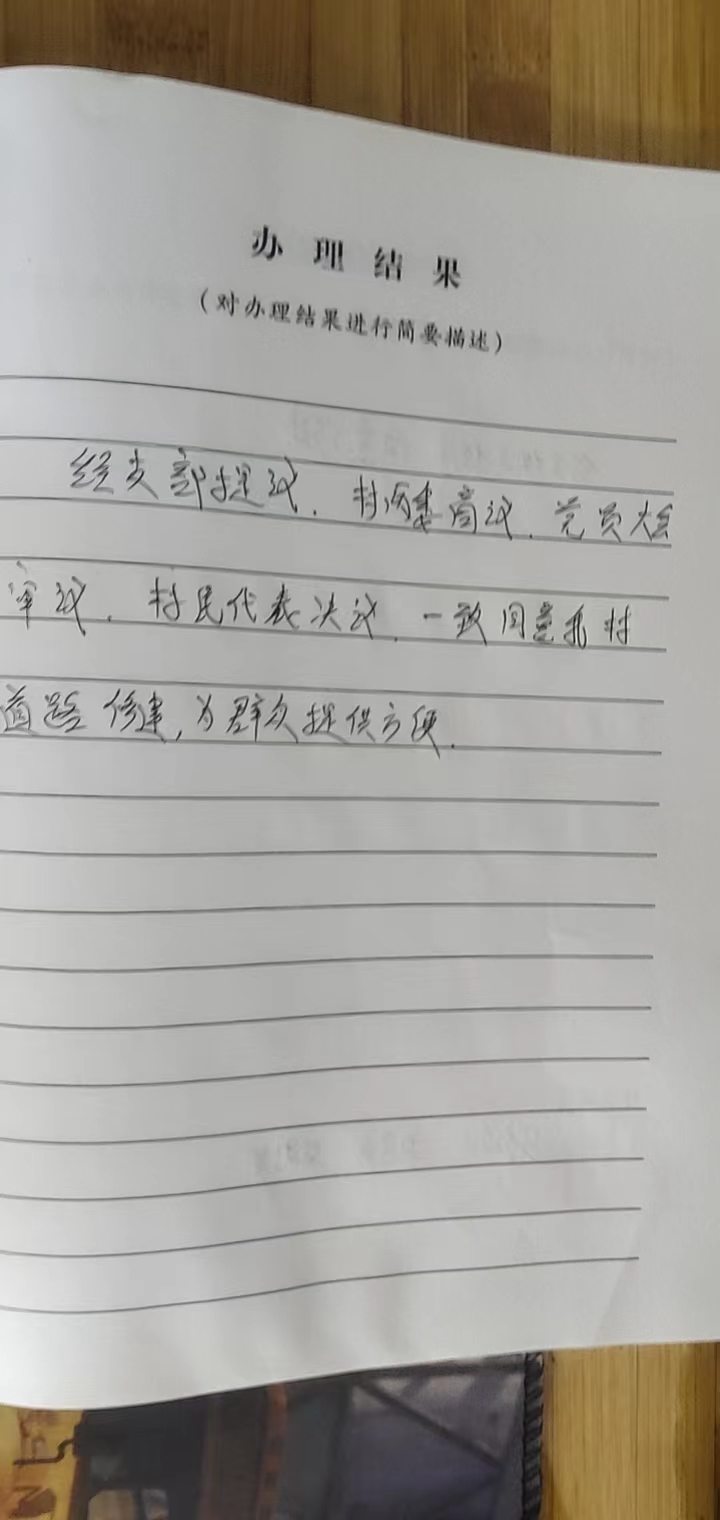 办理结果
(对办理结果进行简要描述)
经支部提议、村两委商议、党员大会
审议、村民代表决议、一致同意我村
道路修建,为群众提供方便.